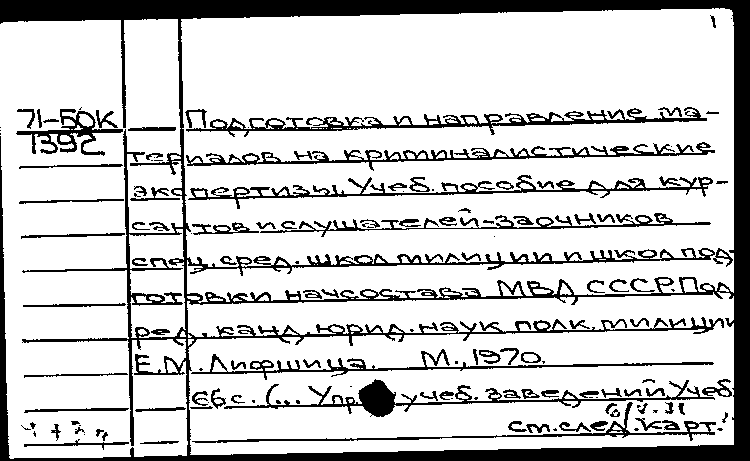 1
71-БОК Подготовка и направление ма-
1392 териалов на криминалистические
экспертизы. Учеб. пособие для кур-
сантов и слушателей-заочников
спец. сред. школ милиции и школ под-
готовки начсостава МВД СССР. Под
ред. канд. юрид. наук полк. милиции
Е.М. Лифшица. М., 1970.
66 с. (... Упр. учеб. заведений. Учеб
см. след. карт.